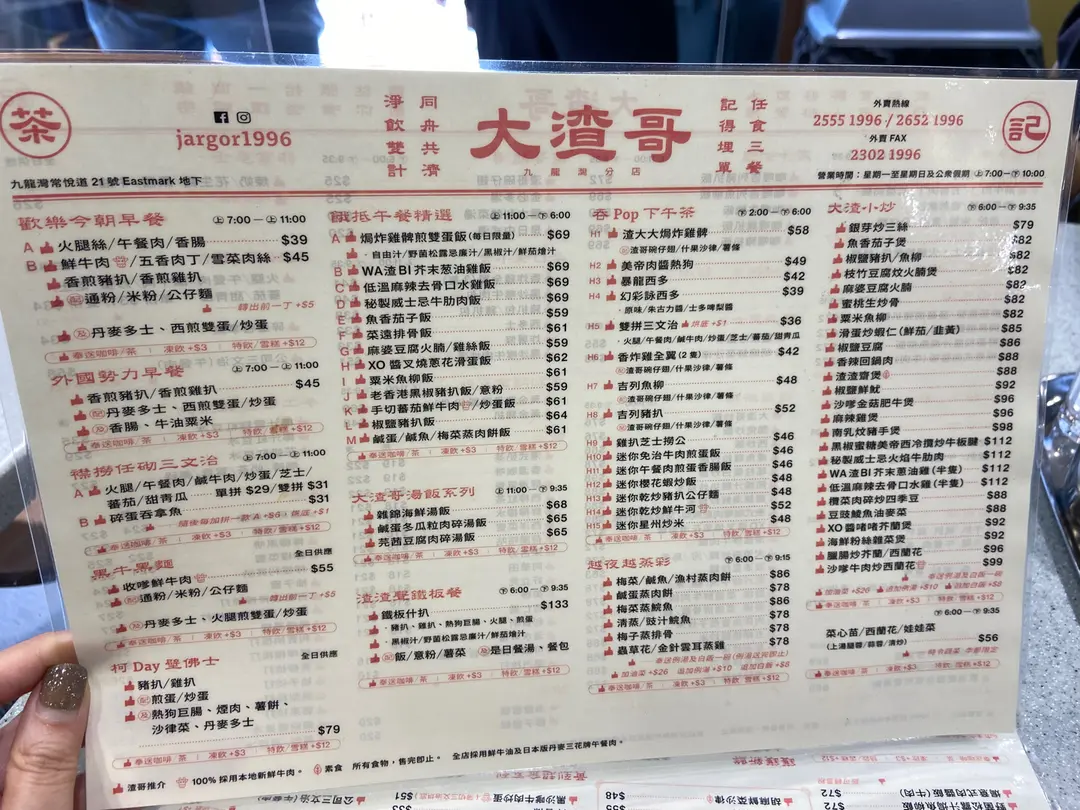 茶
jargor1996
九龍灣常悅道 21 號 Eastmark 地下
淨飲雙計
同舟共濟
大渣哥
九龍灣分店
記得埋單
任食三餐
外賣熱線
2555 1996 / 2652 1996
外賣 FAX
2302 1996
記
營業時間：星期一至星期日及公眾假期 上7:00一下10:00
歡樂今朝早餐 上7:00一上11:00
A 火腿絲/午餐肉/香腸 $39
B 鮮牛肉/五香肉丁/雪菜肉絲 $45
香煎豬扒/香煎雞扒
配 通粉/米粉/公仔麵
轉出前一丁 +$5
及 丹麥多士、西煎雙蛋/炒蛋
奉送咖啡/茶 | 凍飲 +$3 | 特飲/雪糕 +$12
外國勢力早餐 上7:00一上11:00
香煎豬扒/香煎雞扒 $45
配 丹麥多士、西煎雙蛋/炒蛋
及 香腸、牛油粟米
奉送咖啡/茶 | 凍飲 +$3 | 特飲/雪糕 +$12
襟撈任砌三文治 上7:00一上11:00
A 火腿/午餐肉/鹹牛肉/炒蛋/芝士/
蕃茄/甜青瓜 單拼 $29/雙拼 $31
B 碎蛋吞拿魚 $31
隨後每加拼一款 A +$6、烘底 +$1
奉送咖啡/茶 | 凍飲 +$3 | 特飲/雪糕 +$12
黑牛黑麵 全日供應
收嗲鮮牛肉 $55
配 通粉/米粉/公仔麵
轉出前一丁 +$5
及 丹麥多士、火腿煎雙蛋/炒蛋
奉送咖啡/茶 | 凍飲 +$3 | 特飲/雪糕 +$12
柯 Day 璧佛士 全日供應
豬扒/雞扒
配 煎蛋/炒蛋
及 熱狗巨腸、煙肉、薯餅、
沙律菜、丹麥多士
$79
奉送咖啡/茶 | 凍飲 +$3 | 特飲/雪糕 +$12
餓抵午餐精選 上11:00一下6:00
A 焗炸雞髀煎雙蛋飯(每日限量) $69
·自由汁/野菌松露忌廉汁/黑椒汁/鮮茄燴汁
B WA渣BI芥末葱油雞飯 $69
C 低溫麻辣去骨口水雞飯 $69
D 秘製威士忌牛肋肉飯 $69
E 魚香茄子飯 $59
F 菜遠排骨飯 $61
G 麻婆豆腐火腩/雞絲飯 $59
H XO 醬叉燒蔥花滑蛋飯 $62
I 粟米魚柳飯 $61
J 老香港黑椒豬扒飯/意粉 $59
K 手切蕃茄鮮牛肉/炒蛋飯 $61
L 椒鹽豬扒飯 $64
M 鹹蛋/鹹魚/梅菜蒸肉餅飯 $61
奉送咖啡/茶 | 凍飲 +$3 | 特飲/雪糕 +$12
大渣哥湯飯系列 上11:00一下9:35
雜錦海鮮湯飯 $68
鹹蛋多瓜粒肉碎湯飯 $65
芫茜豆腐肉碎湯飯 $65
奉送咖啡/茶 | 凍飲 +$3 | 特飲/雪糕 +$12
渣渣聲鐵板餐 下6:00一下9:35
鐵板什扒 $133
·豬扒、雞扒、熱狗巨腸、火腿、煎蛋
·黑椒汁/野菌松露忌廉汁/鮮茄燴汁
配 飯/意粉/薯菜 及 是日餐湯、餐包
奉送咖啡/茶 | 凍飲 +$3 | 特飲/雪糕 +$12
吞 Pop 下午茶 下2:00一下6:00
H1 渣大大焗炸雞髀 $58
配 渣哥碗仔翅/什果沙律/薯條
H2 美帝肉醬熱狗 $49
H3 暴龍西多 $42
H4 幻彩詠西多 $39
·原味/朱古力醬/士多啤梨醬
H5 雙拼三文治 烘底 +$1 $36
·火腿/午餐肉/鹹牛肉/炒蛋/芝士/蕃茄/甜青瓜
H6 香炸雞全翼(2隻) $42
配 渣哥碗仔翅/什果沙律/薯條
H7 吉列魚柳 $48
配 渣哥碗仔翅/什果沙律/薯條
H8 吉列豬扒 $52
配 渣哥碗仔翅/什果沙律/薯條
H9 雞扒芝士撈公 $46
H10 迷你免治牛肉煎蛋飯 $46
H11 迷你午餐肉煎蛋香腸飯 $46
H12 迷你櫻花蝦炒飯 $48
H13 迷你乾炒豬扒公仔麵 $48
H14 迷你乾炒鮮牛河 $52
H15 迷你星州炒米 $48
奉送咖啡/茶 | 凍飲 +$3 | 特飲/雪糕 +$12
越夜越蒸彩 下6:00一下9:15
梅菜/鹹魚/漁村蒸肉餅 $86
鹹蛋蒸肉餅 $78
梅菜蒸鯇魚 $86
清蒸/豉汁鯇魚 $78
梅子蒸排骨 $78
蟲草花/金針雲耳蒸雞 $78
奉送例湯及白飯一碗(例湯送完即止)
加油菜 +$26 追加例湯 +$10 追加白飯 +$8
奉送咖啡/茶 | 凍飲 +$3 | 特飲/雪糕 +$12
大渣小炒 下6:00一下9:35
銀芽炒三絲 $79
魚香茄子煲 $82
椒鹽豬扒/魚柳 $82
枝竹豆腐炆火腩煲 $82
麻婆豆腐火腩 $82
蜜桃生炒骨 $82
粟米魚柳 $82
滑蛋炒蝦仁(鮮茄/韭黃) $85
椒鹽豆腐 $86
香辣回鍋肉 $88
渣渣齋煲 $88
椒鹽鮮魷 $92
沙嗲金菇肥牛煲 $96
麻辣雞煲 $96
南乳炆豬手煲 $98
黑椒蜜糖美帝西冷攬炒牛板腱 $112
秘製威士忌火焰牛肋肉 $112
WA渣BI芥末葱油雞(半隻) $112
低溫麻辣去骨口水雞(半隻) $112
欖菜肉碎炒四季豆 $88
豆豉鯪魚油麥菜 $88
XO 醬啫啫芥蘭煲 $88
海鮮粉絲雜菜煲 $92
臘腸炒芥蘭/西蘭花 $96
沙嗲牛肉炒西蘭花 $99
奉送例湯及白飯一碗
加油菜 +$26 追加例湯 +$10 追加白飯 +$8
奉送咖啡/茶 | 凍飲 +$3 | 特飲/雪糕 +$12
下6:00一下9:35
菜心苗/西蘭花/娃娃菜 $56
(上湯腿蓉/蒜蓉/清炒)
奉送咖啡/茶 | 凍飲 +$3 | 特飲/雪糕 +$12
渣哥推介 100% 採用本地新鮮牛肉。 素食 所有食物，售完即止。 全店採用鮮牛油及日本版丹麥三花牌午餐肉。